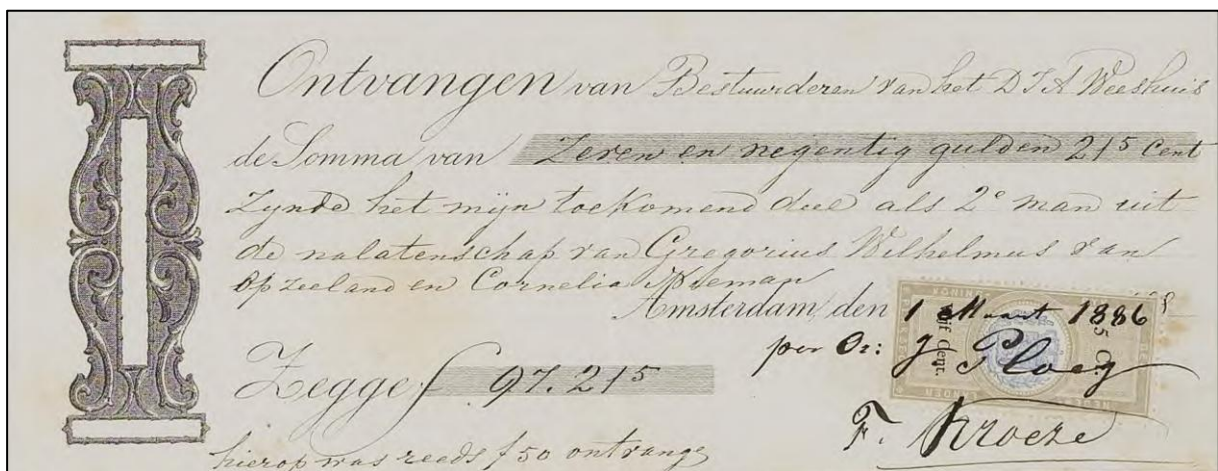 Ontvangen van Bestuurderen van het D I A Weeshuis
de Somma van Zeven en negentig gulden 21⁵ Cent
Zynde het mijn toekomend deel als 2ᵉ man uit
de nalatenschap van Gregorius Wilhelmus van
Opzeeland en Cornelia
Amsterdam, den 1 Maart 1886
per Or: J Ploeg
Zegge f 97.21⁵
F. Kroeze
hierop was reeds f 50 ontvange